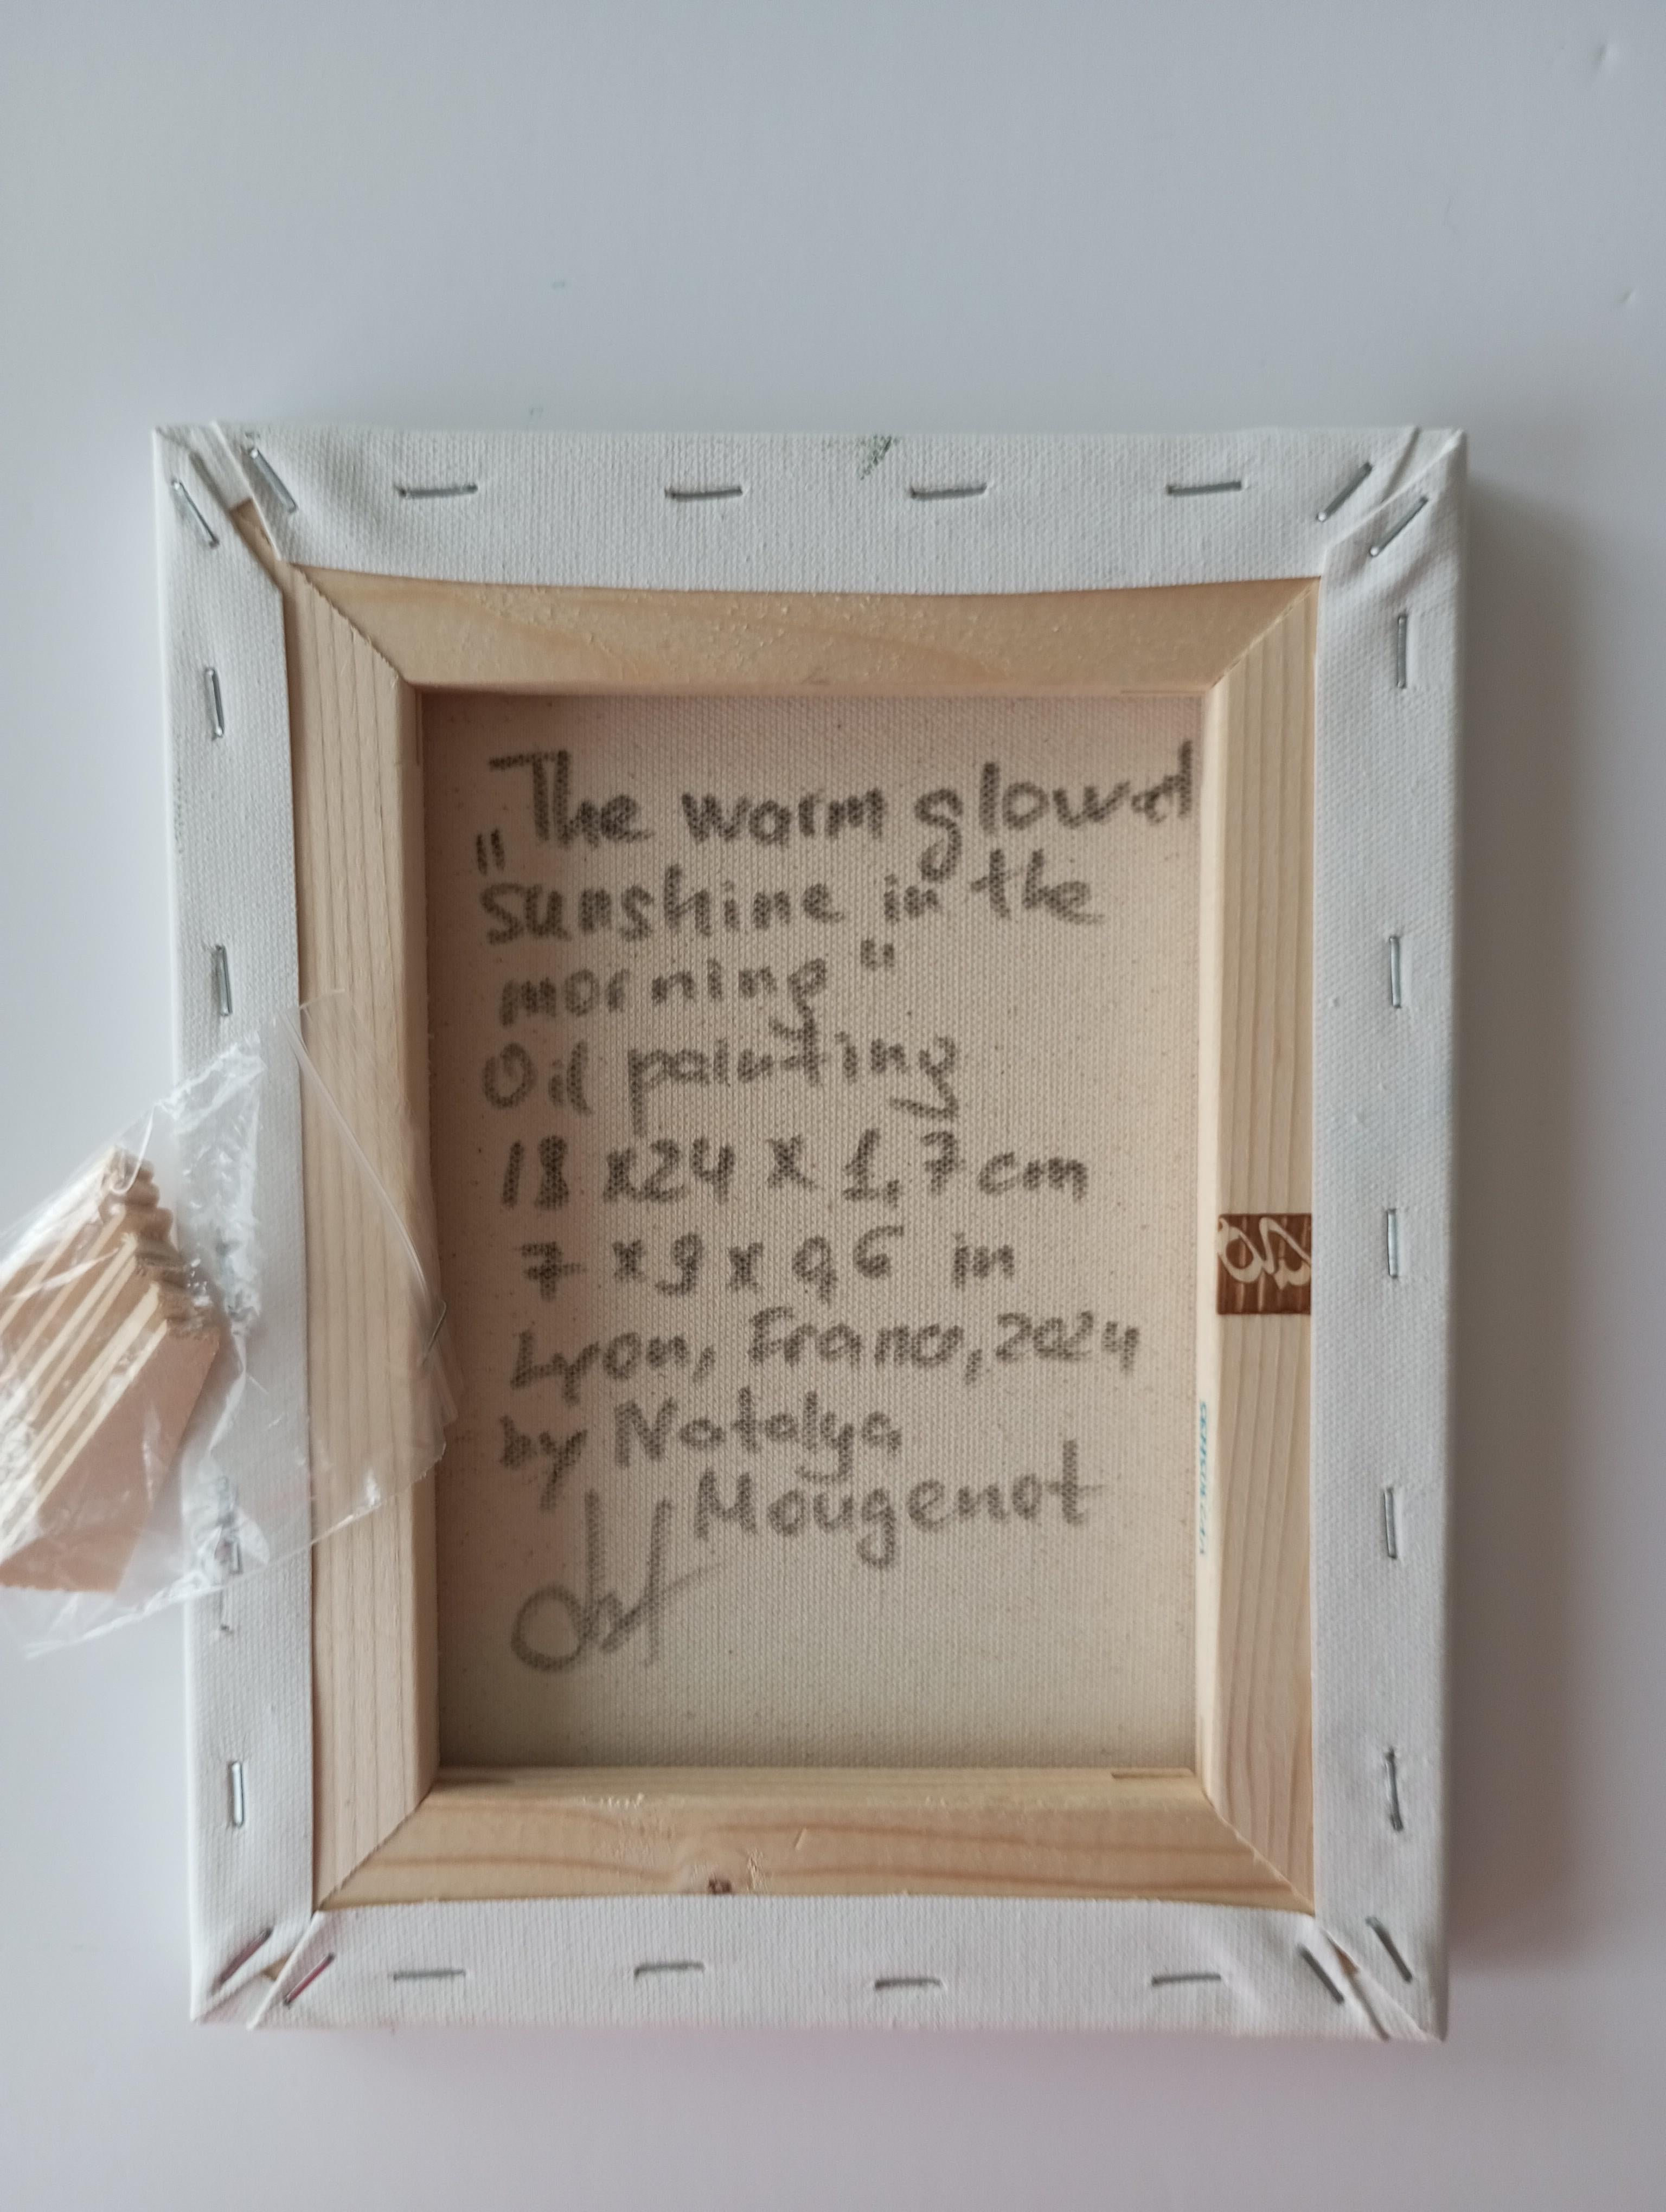 „The warm glow of
sunshine in the
morning“
Oil painting
18 x24 x 1,7 cm
7 x 9 x 0,6 in
Lyon, France, 2024
by Natalya
Mougenot